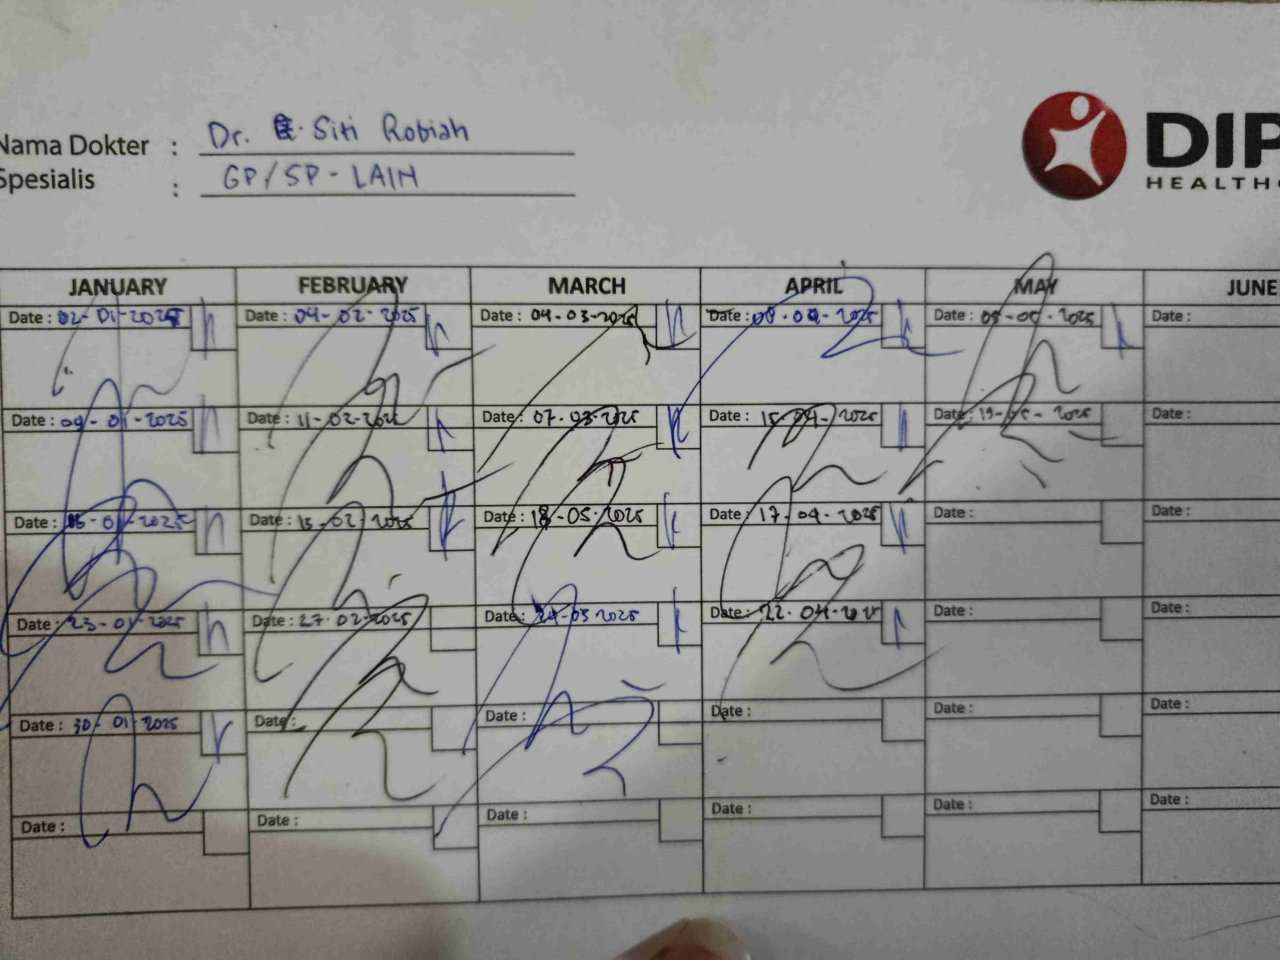 Nama Dokter : Dr. Siti Robiah
Spesialis : GP/SP-LAIN
DIP
HEALTHC
JANUARY FEBRUARY MARCH APRIL MAY JUNE
Date : 02-01-2025 Date : 04-02-2025 Date : 04-03-2025 Date : 08-04-2025 Date : 05-05-2025 Date :
Date : 09-01-2025 Date : 11-02-202 Date : 07-03-2025 Date : 15-04-2025 Date : 19-05-2025 Date :
Date : 16-01-2025 Date : 15-02-2025 Date : 18-03-2025 Date : 17-04-2025 Date : Date :
Date : 23-01-2025 Date : 27-02-2025 Date : 24-03-2025 Date : 22-04-2025 Date : Date :
Date : 30-01-2025 Date : Date : Date : Date : Date :
Date : Date : Date : Date : Date : Date :